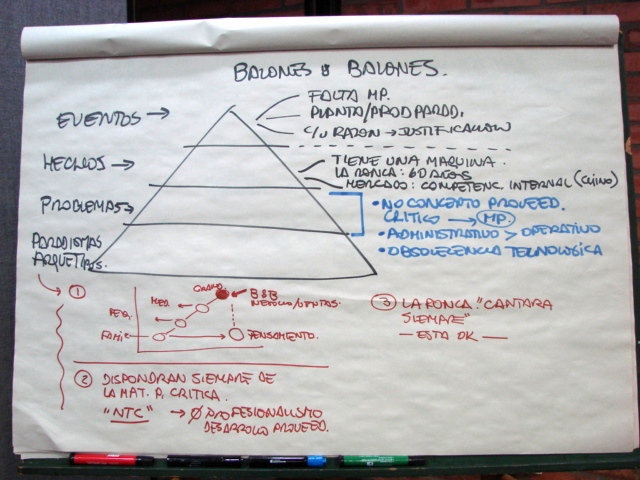 BALONES & BALONES.
EVENTOS →
FALTA MP.
PLANTA/PROD PARAD.
C/U RAZON → JUSTIFICACION
HECHOS →
TIENE UNA MAQUINA.
LA RONCA: 60 AÑOS
MERCADO: COMPETENC. INTERNAL (CHINO)
PROBLEMAS →
• NO CONCEPTO PROVEED.
CRITICO → MP.
• ADMINISTRATIVO > OPERATIVO
• OBSOLESCENCIA TECNOLOGICA
PARADIGMAS
ARQUETIPOS.
①
GRAND
MED.
PEQ.
FAMIL
B&B
NEGOCIO/VENTAS.
PENSAMIENTO.
② DISPONDRAN SIEMPRE DE
LA MAT. P. CRITICA.
"NTC" → Ø PROFESIONALISMO
DESARROLLO PROVEED.
③ LA RONCA "CANTARA
SIEMPRE"
— ESTA OK —